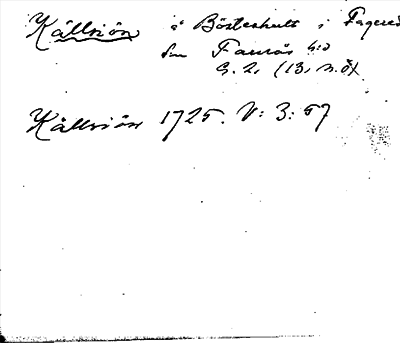 Källsiön å Bösteshult i Fagered
sn Faurås hd
G. 2, (13, n.ö)
Källsiön 1725. V: 3: 57